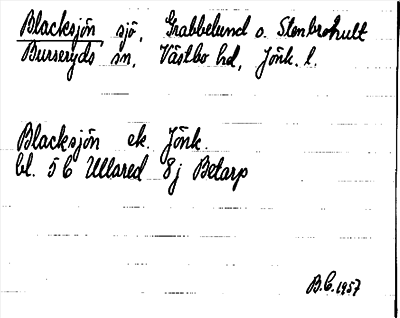 Blacksjön sjö, Grabbelund o. Stenbrohult
Burseryds sn, Västbo hd, Jönk. l.
Blacksjön ek. Jönk.
bl. 5C Ullared 8j Betarp
B.C. 1957